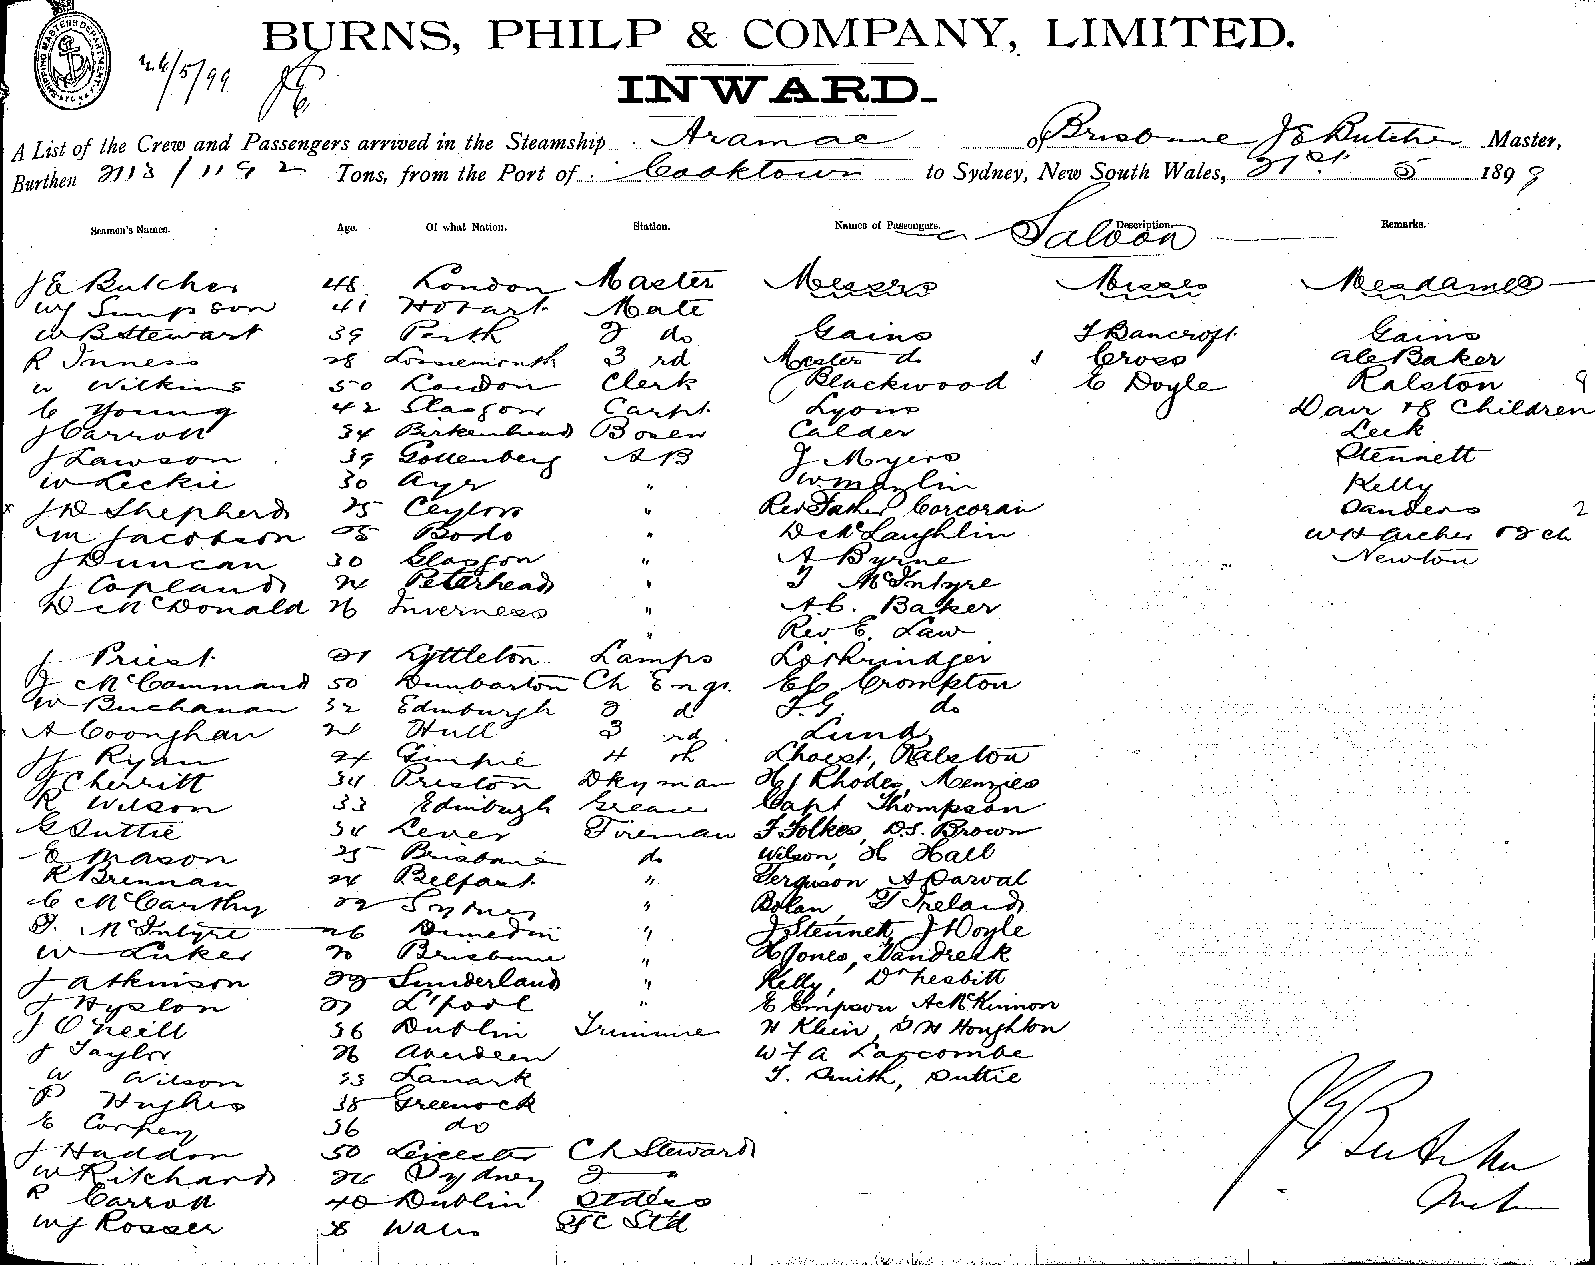 BURNS, PHILP & COMPANY, LIMITED.
26/5/99 JE
INWARD.
A List of the Crew and Passengers arrived in the Steamship Aramac of Brisbane J E Butcher Master,
Burthen 2113/1192 Tons, from the Port of Cooktown to Sydney, New South Wales, 21st 5 1899
Seamen's Names. Age. Of what Nation. Station. Names of Passengers. Description. Remarks.
Saloon
J E Butcher 48 London Master Messrs Misses Mesdames
W J Simpson 41 Hobart Mate
W B Stewart 39 Perth 2 do Gains T Bancroft Gains
R Inness 28 Lossiemouth 3 rd Master do Cross A C Baker
W Wilkins 50 London Clerk Blackwood E Doyle Ralston
C Young 42 Glasgow Carpt. Lyons & Children
J Carroll 34 Birkenhead Bosen Calder Leck
J Lawson 39 Gottenberg A B J Myers Stennett
W Leckie 30 Ayr " Kelly
J D Shepherd 25 Ceylon " Rev Father Corcoran Sanders 2
M Jacobson 25 Bodo " D McLaughlin W H Archer & 2 ch
J Duncan 30 Glasgow " A Byrne Newton
J Copland 24 Peterhead " T McIntyre
D McDonald 26 Inverness " A C. Baker
" Rev E. Law
J Priest 21 Lyttleton Lamps
J McCommand 50 Dumbarton Ch Engr. E C Crompton
W Buchanan 32 Edinburgh 2 d F. G. do
A Coonghan 24 Hull 3 rd Lund
J J Ryan 24 Gimpie 4 th Ralston
J Cherritt 34 Preston Dkyman H J Rhodes, Menzies
R Wilson 33 Edinburgh Greaser Capt Thompson
G Suttie 34 Leven Fireman F Folkes, D S. Brown
E Mason 25 Brisbane do Wilson, H Hall
R Brennan 24 Belfast " Ferguson
C McCarthy 22 Sydney " Bolan, T Ireland
T. McIntyre 26 Dunedin " J Stennett, J Doyle
W Luker 20 Brisbane " H Jones, Vandreck
J Atkinson 29 Sunderland " Kelly, Dr Nesbitt
J Hyslon 27 L'pool " E Empson A McKinnon
J O'Neill 36 Dublin Trimmer H Klein, G H Houghton
J Taylor 26 Aberdeen W F A Larcombe
W Wilson 33 Lanark T. Smith, Suttie
P Hughes 38 Greenock
E 36 do
J Haddon 50 Leicester Ch Steward
W Ritchard 24 Sydney 2 "
R Carroll 40 Dublin
W J Rosser 28 Wales F C Std
J E Butcher